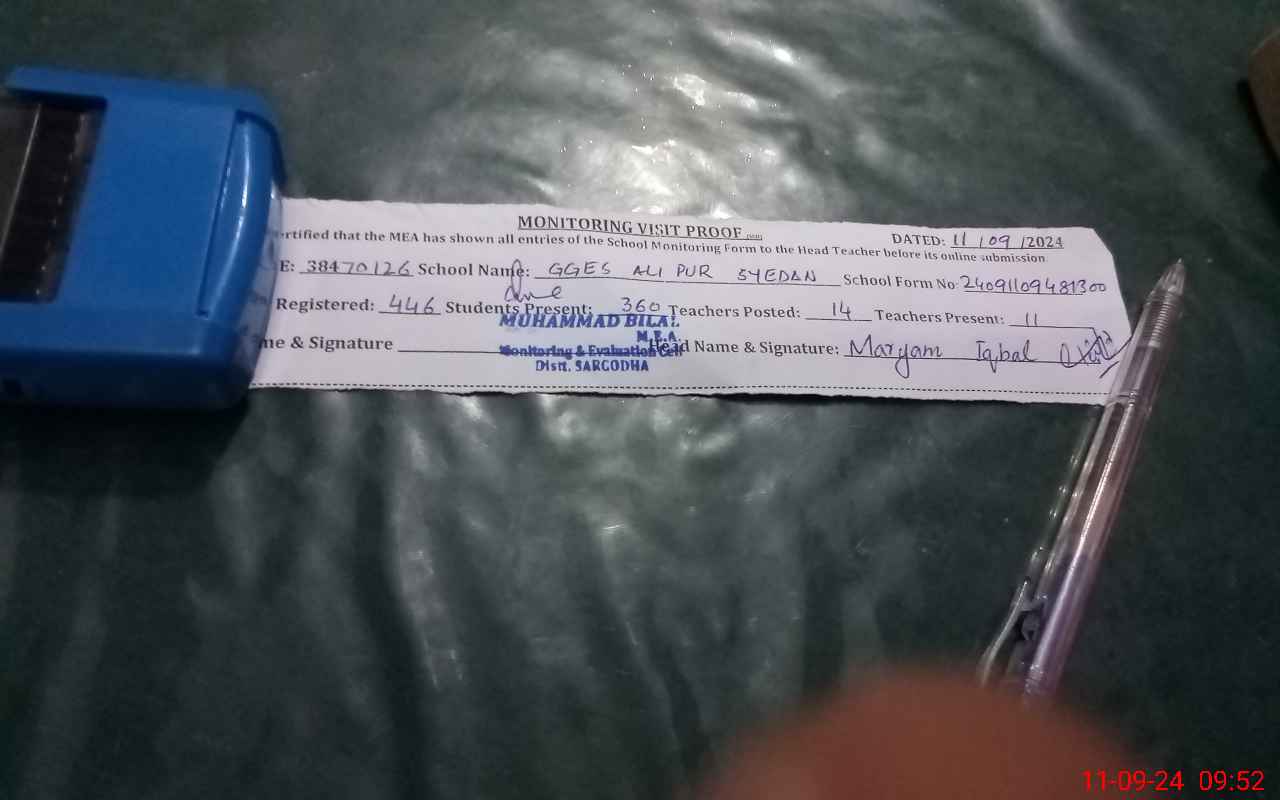 MONITORING VISIT PROOF
DATED: 11 / 09 /2024
rtified that the MEA has shown all entries of the School Monitoring Form to the Head Teacher before its online submission
E: 38470126 School Name: GGES ALI PUR SYEDAN School Form No: 24091109481300
Registered: 446 Students Present: 360 Teachers Posted: 14 Teachers Present: 11
me & Signature Head Name & Signature: Maryam Iqbal
MUHAMMAD BILAL
M.E.A.
Monitoring & Evaluation Cell
Distt. SARGODHA
11-09-24 09:52